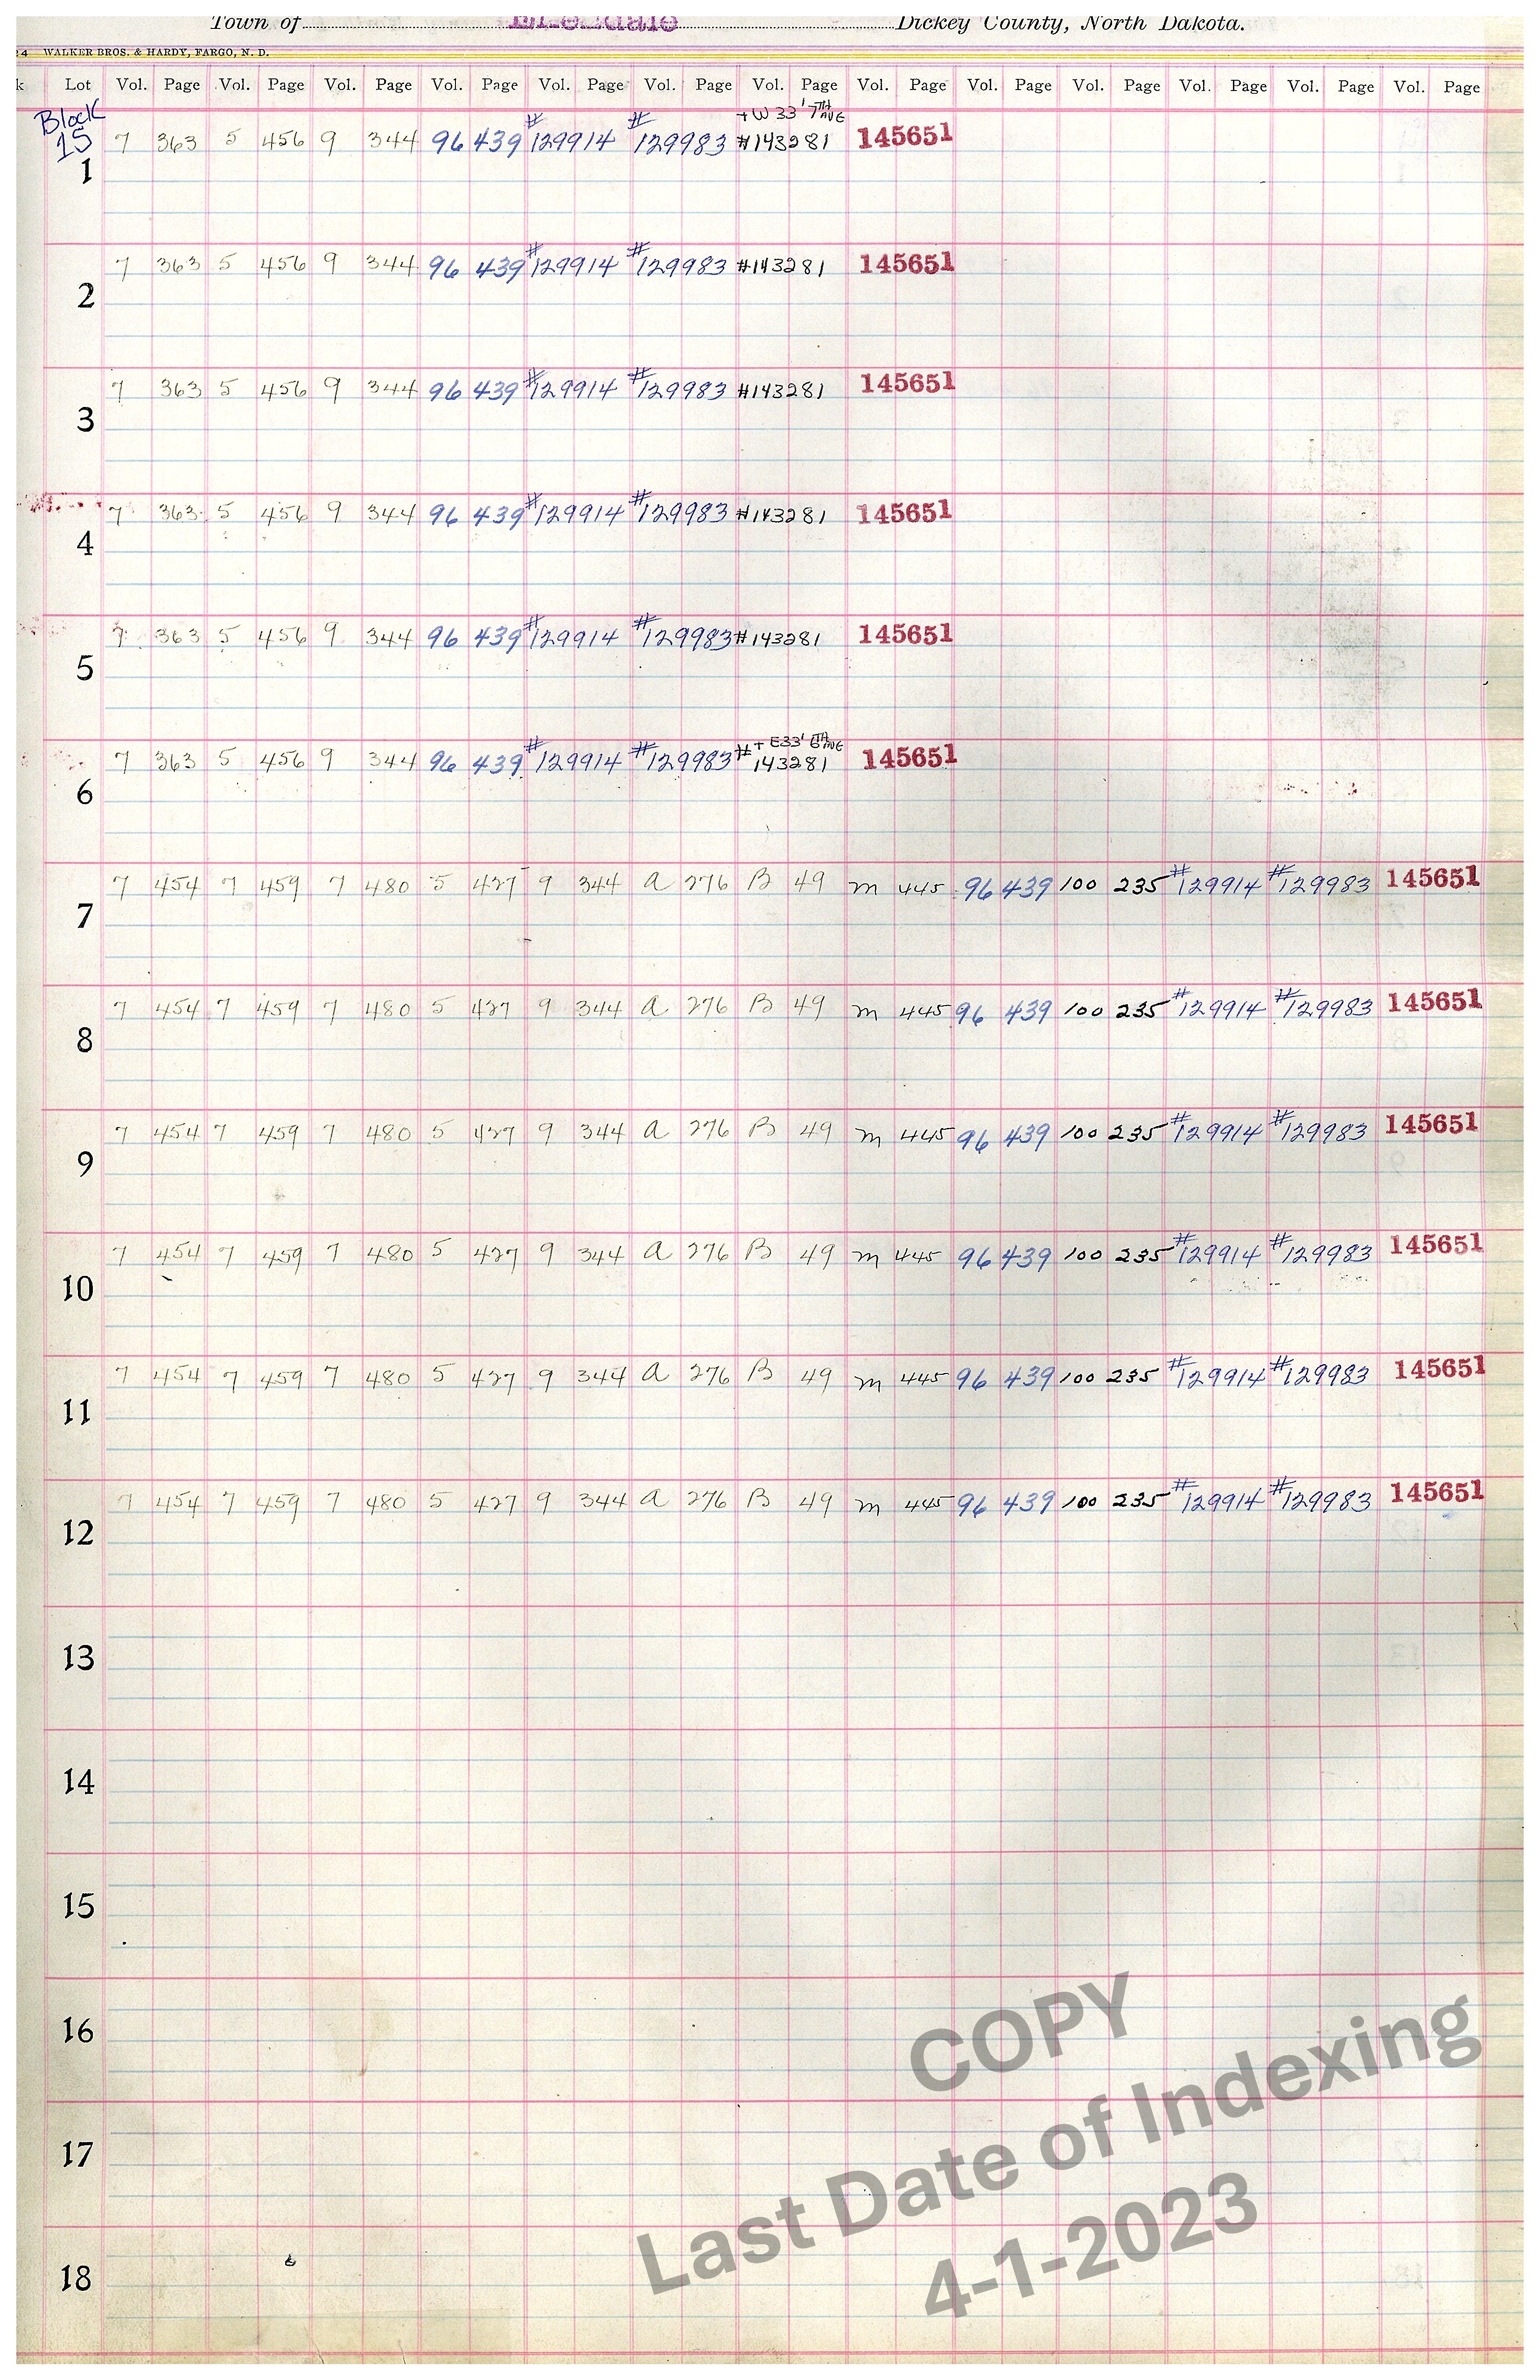 Town of Dickey County, North Dakota.
24 WALKER BROS. & HARDY, FARGO, N. D.
k Lot Vol. Page Vol. Page Vol. Page Vol. Page Vol. Page Vol. Page Vol. Page Vol. Page Vol. Page Vol. Page Vol. Page Vol. Page Vol. Page
Block + W 33' 7TH AVE
15 7 363 5 456 9 344 96 439 #129914 #129983 #143281 145651
1
7 363 5 456 9 344 96 439 #129914 #129983 #143281 145651
2
7 363 5 456 9 344 96 439 #129914 #129983 #143281 145651
3
7 363 5 456 9 344 96 439 #129914 #129983 #143281 145651
4
7 363 5 456 9 344 96 439 #129914 #129983 #143281 145651
5
+ E33' 6TH AVE
7 363 5 456 9 344 96 439 #129914 #129983 #143281 145651
6
7 454 7 459 7 480 5 427 9 344 a 276 B 49 m 445 96 439 100 235 #129914 #129983 145651
7
7 454 7 459 7 480 5 427 9 344 a 276 B 49 m 445 96 439 100 235 #129914 #129983 145651
8
7 454 7 459 7 480 5 427 9 344 a 276 B 49 m 445 96 439 100 235 #129914 #129983 145651
9
7 454 7 459 7 480 5 427 9 344 a 276 B 49 m 445 96 439 100 235 #129914 #129983 145651
10
7 454 7 459 7 480 5 427 9 344 a 276 B 49 m 445 96 439 100 235 #129914 #129983 145651
11
7 454 7 459 7 480 5 427 9 344 a 276 B 49 m 445 96 439 100 235 #129914 #129983 145651
12
13
14
15
16
17
18
COPY
Last Date of Indexing
4-1-2023